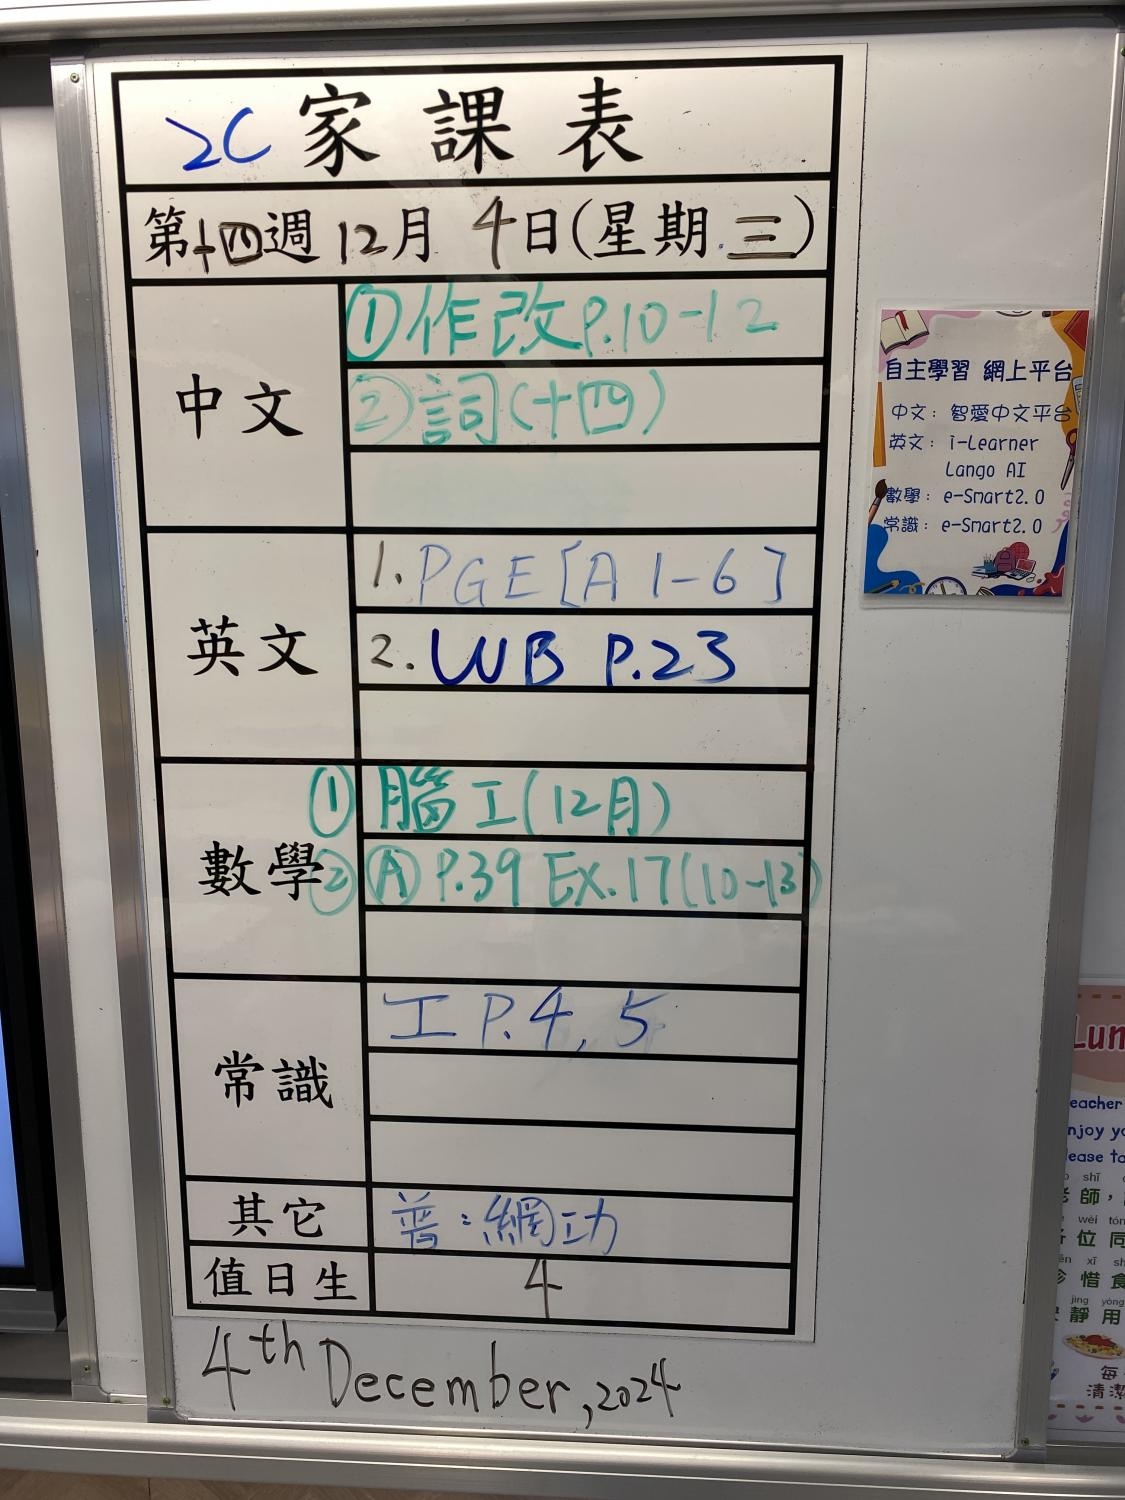 2C 家課表
第十四週 12月 4日(星期 三)
中文
①作改P.10-12
②詞(十四)
英文
1. PGE[A 1-6]
2. WB P.23
數學
① 腦工(12月)
② Ⓐ P.39 Ex.17(10-13)
常識
工 P.4, 5
其它
普：網功
值日生
4
4th December, 2024
自主學習 網上平台
中文：智愛中文平台
英文：i-Learner
Lango AI
數學：e-Smart2.0
常識：e-Smart2.0
Lun
eacher
njoy yo
ease to
shī
老師，
wèi tón
各位同
xī sh
珍惜食
jìng yòng
靜用
每
清潔